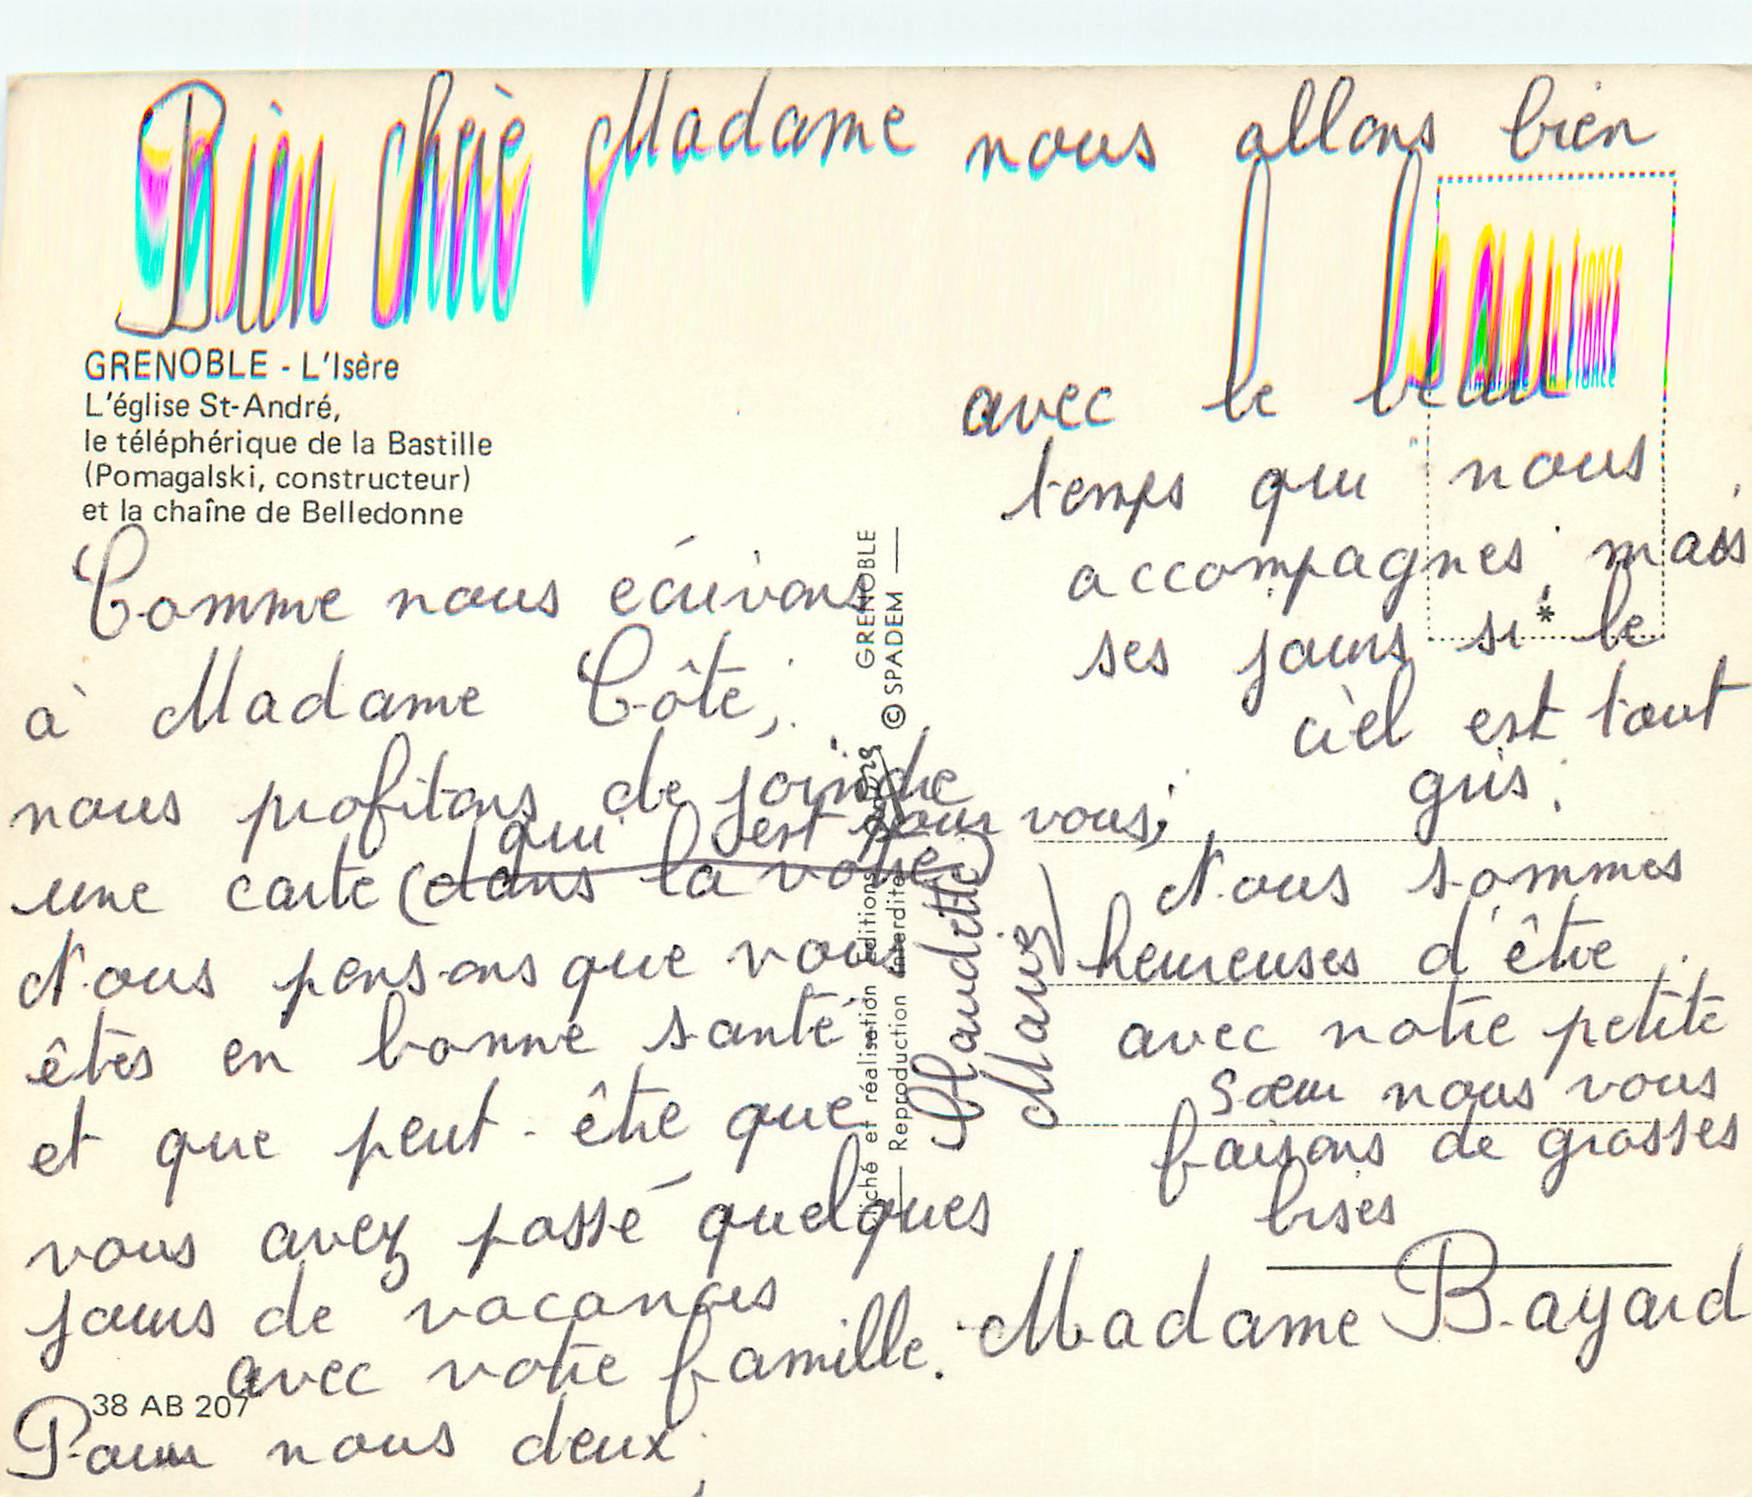 Bien chère Madame
GRENOBLE - L'Isère
L'église St-André,
le téléphérique de la Bastille
(Pomagalski, constructeur)
et la chaîne de Belledonne
Comme nous écrivons
à Madame Côte,
nous profitons de joindre
qui est pour vous;
une carte (dans la votre)
Nous pensons que vous
êtes en bonne santé
et que peut-être que
vous avez passé quelques
jours de vacances
avec votre famille.
38 AB 207
Pour nous deux,
nous allons bien
avec le beau
temps qui nous
accompagnes, mais
ses jours si le
*
ciel est tout
gris.
Nous sommes
heureuses d'être
avec notre petite
sœur nous vous
faisons de grosses
bises
Madame Bayard
Claudette
Marie
GRENOBLE
© SPADEM
Cliché et réalisation Editions
Reproduction interdite